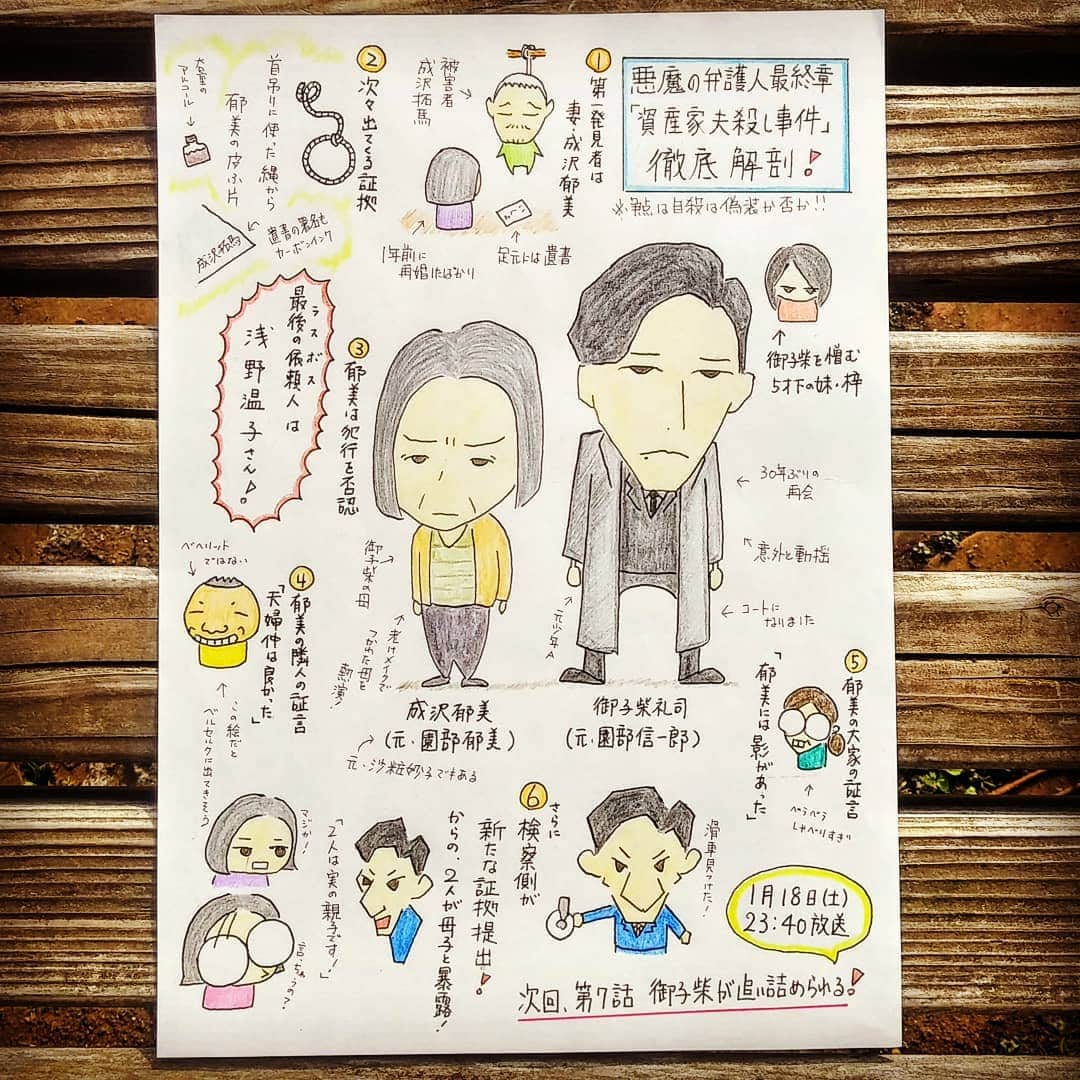 悪魔の弁護人最終章
「資産家夫殺し事件」
徹底解剖!
※争点は自殺は偽装か否か!!
①第一発見者は
妻・成沢郁美
被害者
成沢拓馬
1年前に
再婚したばかり
足元には遺書
②次々出てくる証拠
首吊りに使った縄から
郁美の皮ふ片
大量の
アルコール
遺書の署名も
カーボンインク
成沢拓馬
ラスボス
最後の依頼人は
浅野温子さん♪
御子柴を憎む
5才下の妹・梓
③郁美は犯行を否認
御子柴の母
老けメイクで
つかれた母を
熱演!
30年ぶりの
再会
意外と動揺
コートに
なりました
元少年A
成沢郁美
(元・園部郁美)
元・沙粧妙子でもある
御子柴礼司
(元・園部信一郎)
④郁美の隣人の証言
「夫婦仲は良かった」
ベヘリット
ではない
この絵だと
ベルセルクに出てきそう
⑤郁美の大家の証言
「郁美には影があった」
ぺらぺら
しゃべりすぎ
⑥さらに
検察側が
新たな証拠提出!
からの、2人が母子と暴露!
滑車見つけた!
「2人は実の親子です!」
マジか!
言っちゃうの?
1月18日(土)
23:40放送
次回、第7話 御子柴が追い詰められる!